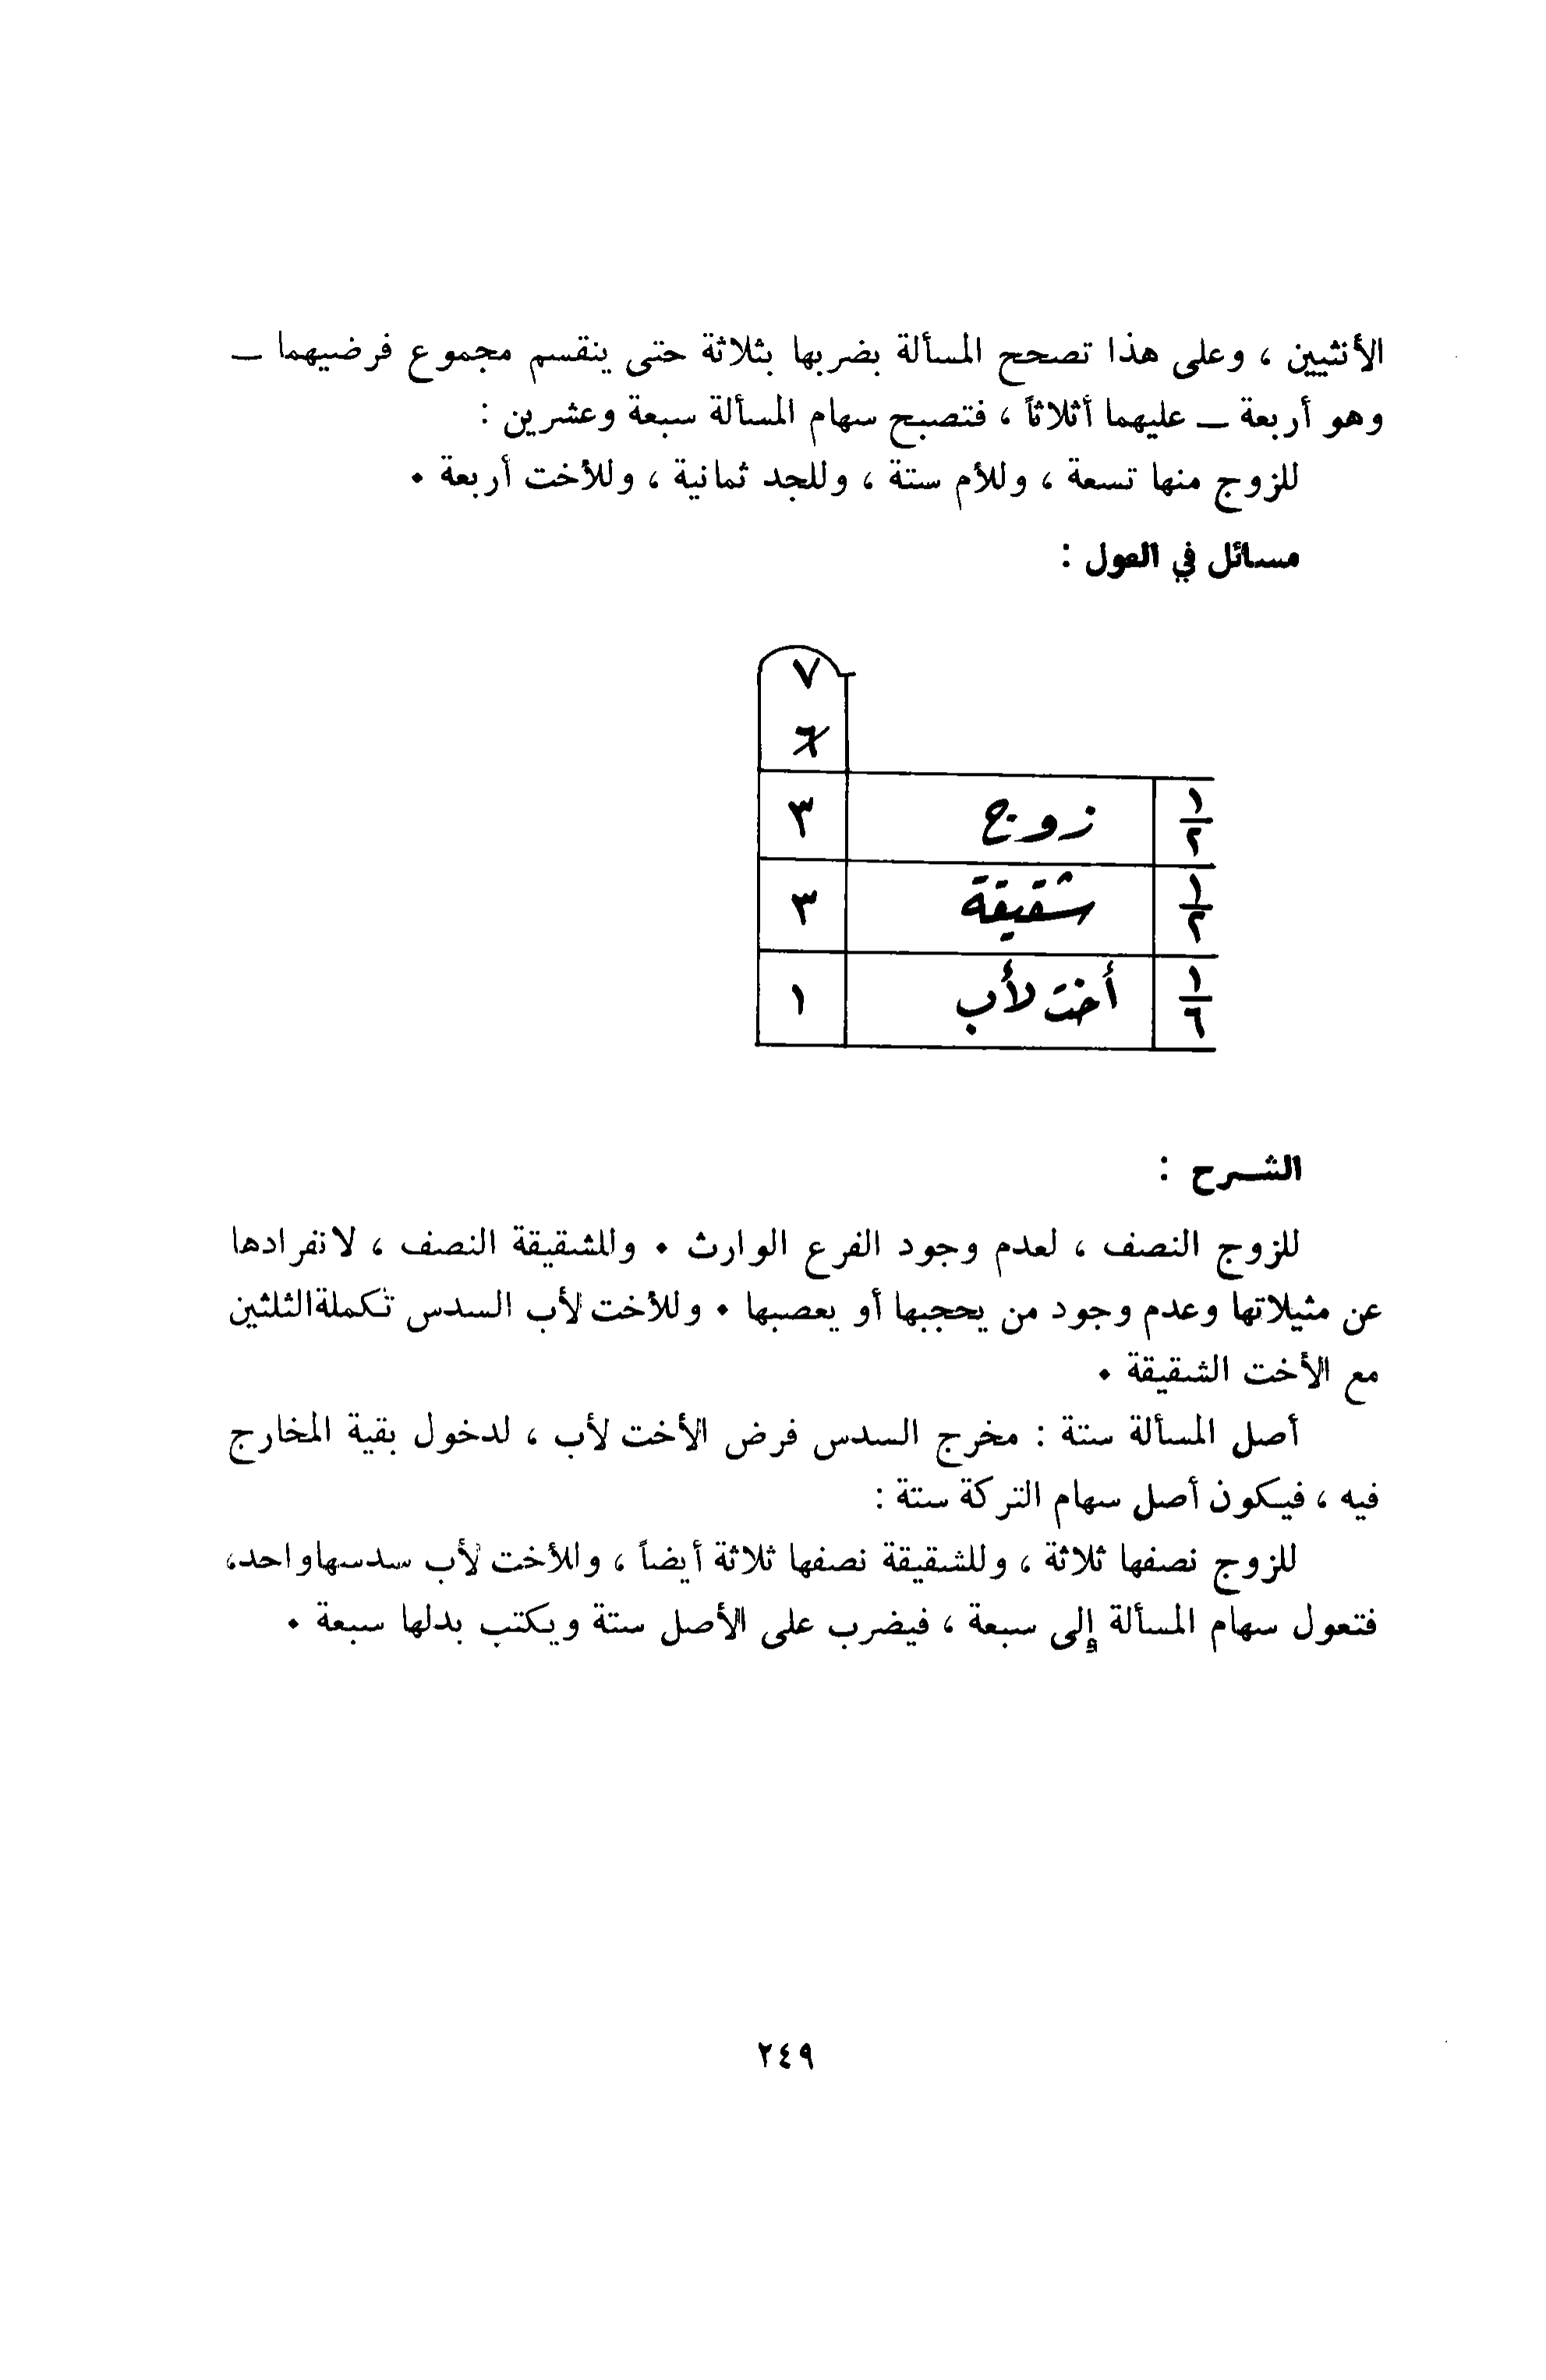 الأنثيين ، وعلى هذا تصحح المسألة بضربها بثلاثة حتى ينقسم مجموع فرضيهما —
وهو أربعة — عليهما أثلاثاً ، فتصبح سهام المسألة سبعة وعشرين :
للزوج منها تسعة ، وللأم ستة ، وللجد ثمانية ، وللأخت أربعة ٠
مسائل في العول :
٧
٦
١/٢ زوج ٣
١/٢ شقيقة ٣
١/٦ أخت لأب ١
الشرح :
للزوج النصف ، لعدم وجود الفرع الوارث ٠ وللشقيقة النصف ، لانفرادها
عن مثيلاتها وعدم وجود من يحجبها أو يعصبها ٠ وللأخت لأب السدس تكملةالثلثين
مع الأخت الشقيقة ٠
أصل المسألة ستة : مخرج السدس فرض الأخت لأب ، لدخول بقية المخارج
فيه ، فيكون أصل سهام التركة ستة :
للزوج نصفها ثلاثة ، وللشقيقة نصفها ثلاثة أيضاً ، وللأخت لأب سدسهاواحد،
فتعول سهام المسألة إلى سبعة ، فيضرب على الأصل ستة ويكتب بدلها سبعة ٠
٢٤٩